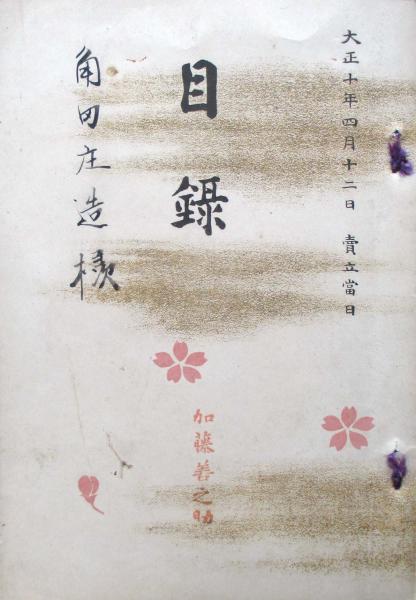 大正十年四月十二日　賣立當日
目錄
加藤善之助
角田庄造様